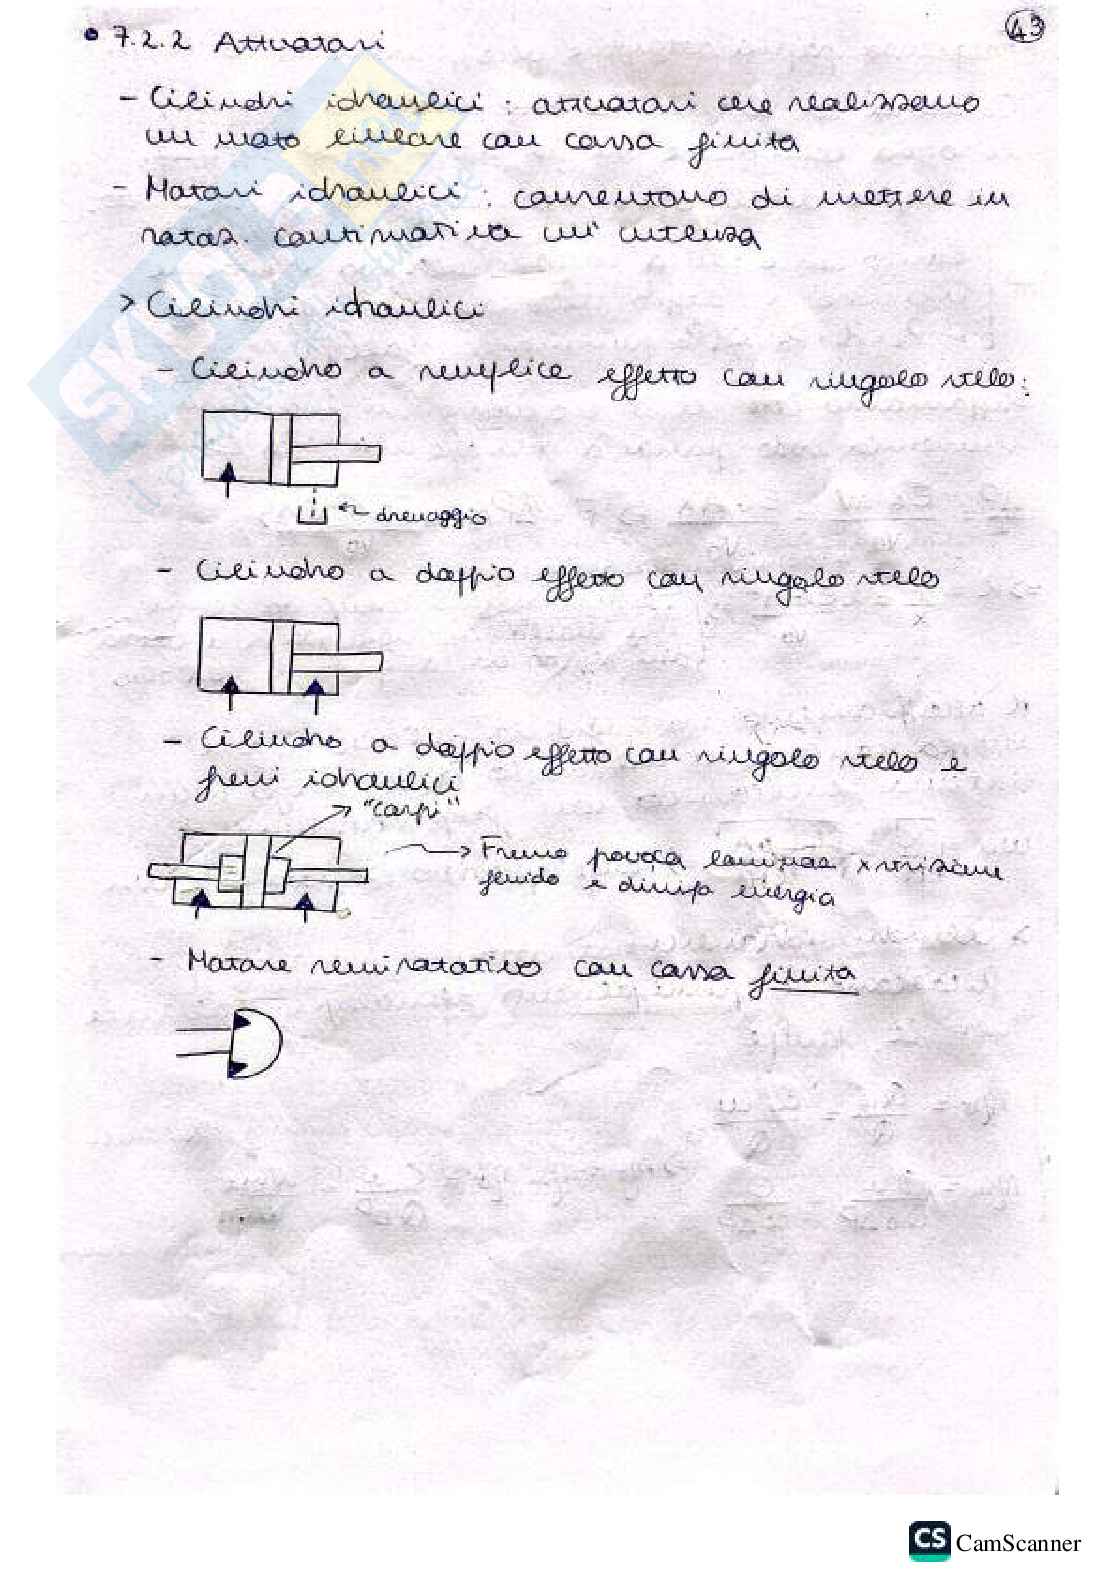 43
• 7.2.2 Attuatori
- Cilindri idraulici : attuatori che realizzano
un moto lineare con corsa finita
- Motori idraulici : consentono di mettere in
rotaz. continuativa un' utenza
> Cilindri idraulici
- Cilindro a semplice effetto con singolo stelo:
drenaggio
- Cilindro a doppio effetto con singolo stelo
- Cilindro a doppio effetto con singolo stelo e
freni idraulici
"corpi"
Freno provoca laminaz x
fluido e dissipa energia
- Motore semirotativo con corsa finita
SKUOLA
CS CamScanner